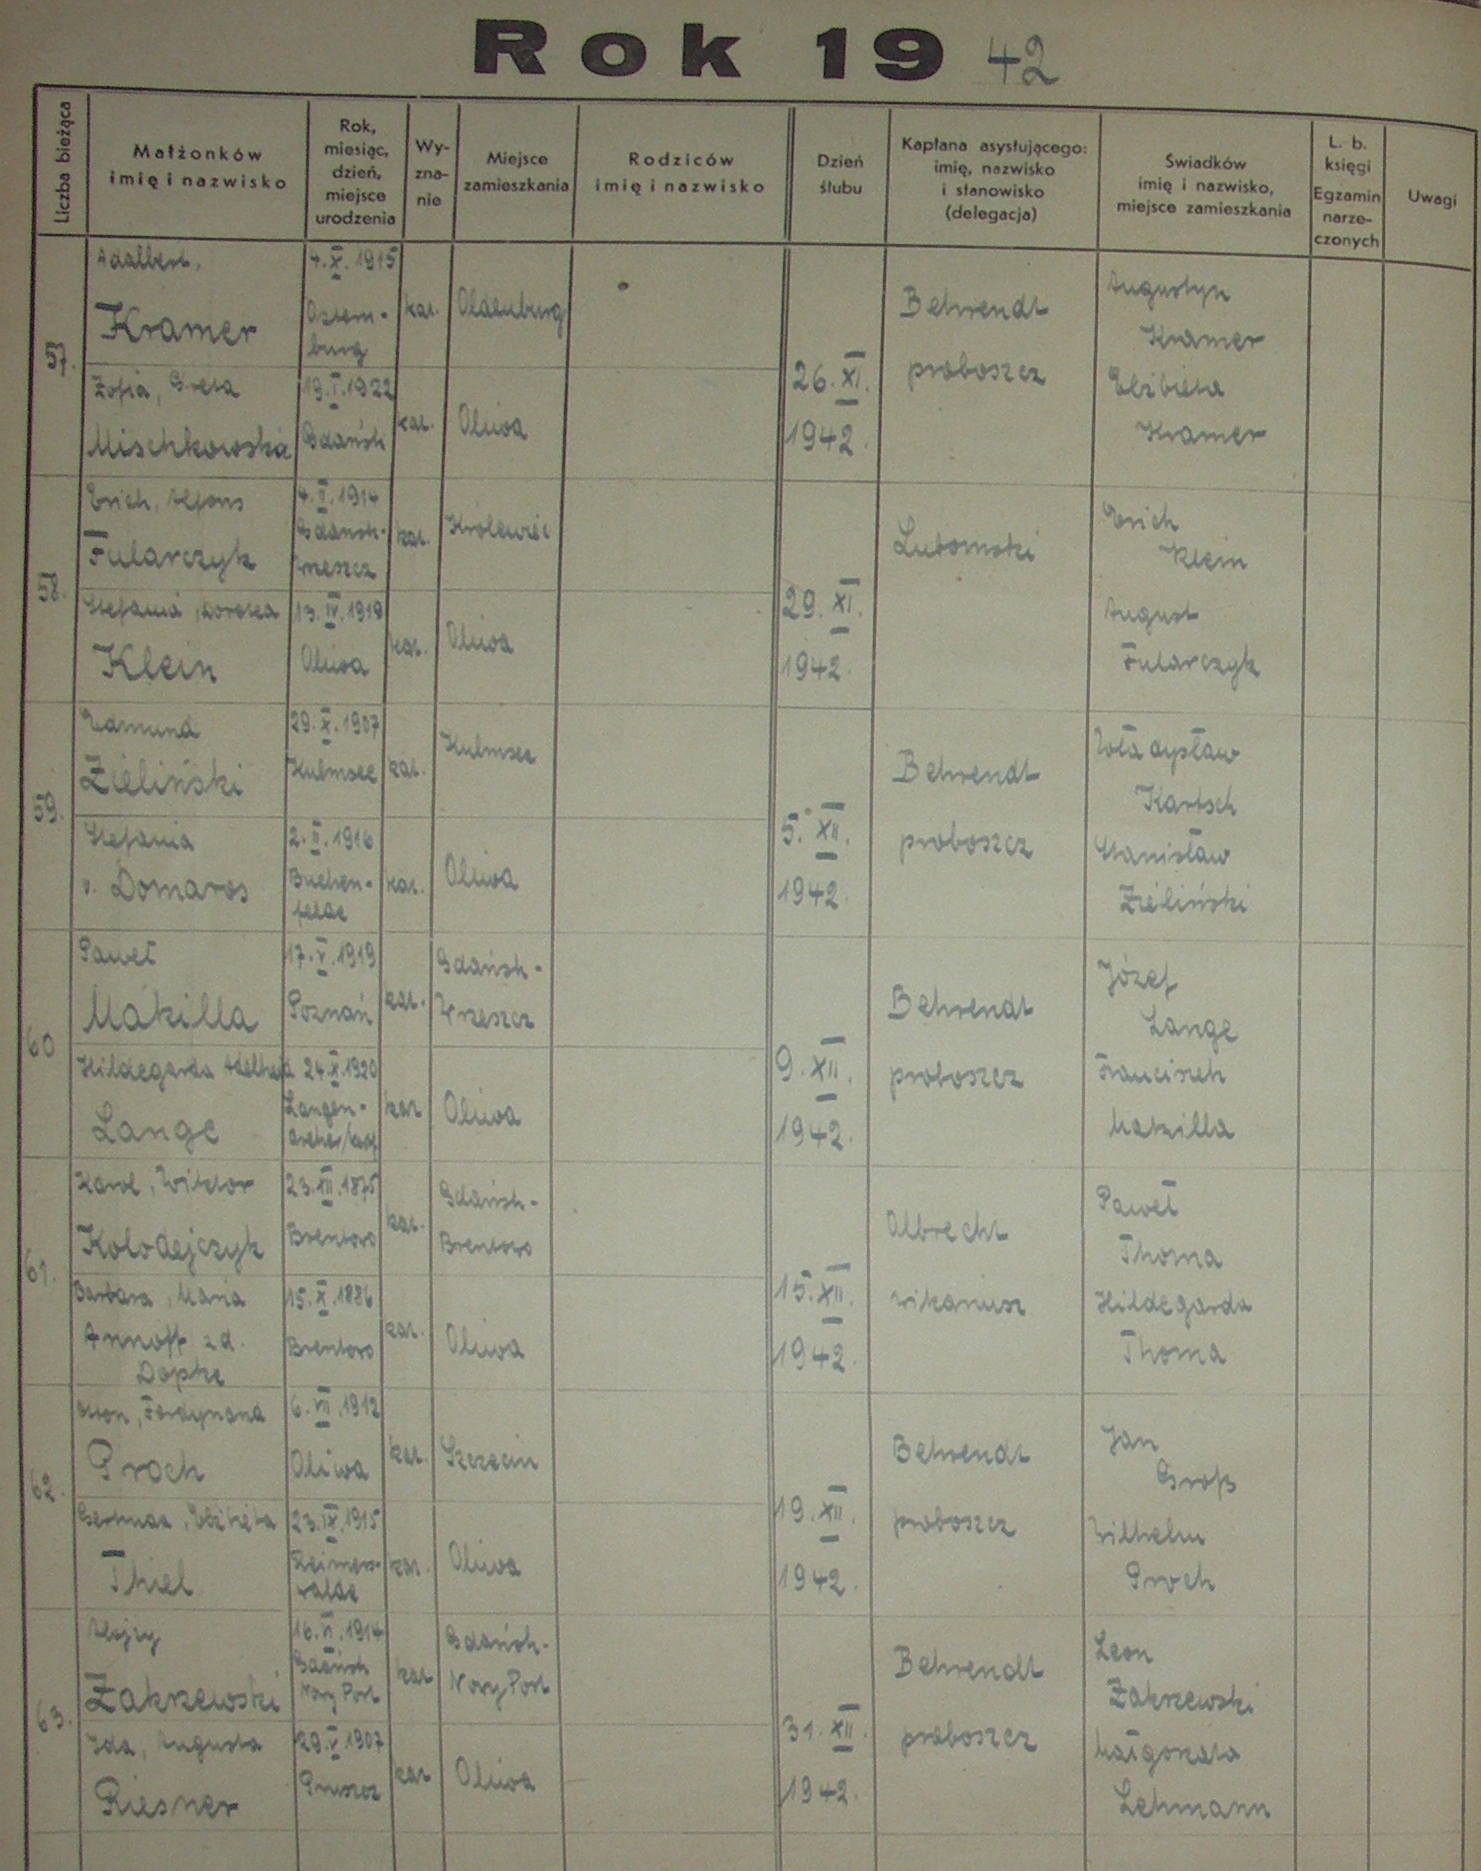 Rok 1942
Liczba bieżąca
Małżonków
imię i nazwisko
Rok,
miesiąc,
dzień,
miejsce
urodzenia
Wy-
zna-
nie
Miejsce
zamieszkania
Rodziców
imię i nazwisko
Dzień
ślubu
Kapłana asystującego:
imię, nazwisko
i stanowisko
(delegacja)
Świadków
imię i nazwisko,
miejsce zamieszkania
L. b.
księgi
Egzamin
narze-
czonych
Uwagi
57.
Adalbert,
Kramer
4.X.1915
Ostern-
burg
kat.
Oldenburg
Zofia, Greta
Mischkowska
19.I.1922
Gdańsk
kat.
Oliwa
26.XI.
1942.
Behrendt
proboszcz
Augustyn
Kramer
Elżbieta
Kramer
58.
Erich, Alfons
Fularczyk
4.II.1914
Gdańsk-
Wrzeszcz
kat.
Królewiec
Stefania, Dorotea
Klein
13.IV.1919
Oliwa
kat.
Oliwa
29.XI.
1942.
Lubomski
Erich
Klein
August
Fularczyk
59.
Edmund
Zieliński
29.X.1907
Kulmsee
kat.
Kulmsee
Stefania
v. Domaros
2.II.1916
Buchen-
felde
kat.
Oliwa
5.XII.
1942.
Behrendt
proboszcz
Władysław
Kartsch
Stanisław
Zieliński
60
Paweł
Makilla
17.V.1919
Poznań
kat.
Gdańsk-
Wrzeszcz
Hildegarda Adelheid
Lange
24.X.1920
Langen-
kat
Oliwa
9.XII.
1942.
Behrendt
proboszcz
Józef
Lange
Franciszek
Makilla
61.
Karol, Wiktor
Kolodejczyk
23.VII.1875
Brentowo
kat.
Gdańsk-
Brentowo
Barbara, Maria
Annoff zd.
Dopke
15.X.1886
Brentowo
kat.
Oliwa
15.XII.
1942.
Albrecht
wikariusz
Paweł
Thoma
Hildegarda
Thoma
62.
Otton, Ferdynand
Proch
6.VII.1912
Oliwa
kat.
Szczecin
Gertruda, Elżbieta
Thiel
23.IX.1915
Reimers-
walde
kat.
Oliwa
19.XII.
1942.
Behrendt
proboszcz
Jan
Groß
Wilhelm
Proch
63.
Alojzy
Zakrzewski
16.VI.1914
Gdańsk
Nowy Port
kat
Gdańsk-
Nowy Port
Ida, Augusta
Riesner
29.V.1907
Pruszcz
kat
Oliwa
31.XII.
1942.
Behrendt
proboszcz
Leon
Zakrzewski
Małgorzata
Lehmann